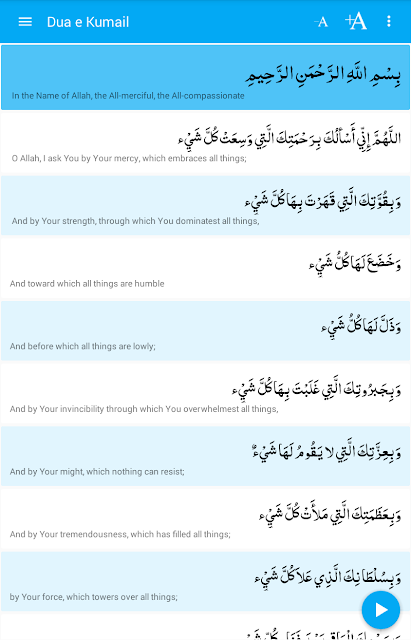 Dua e Kumail
-A +A
بِسْمِ اللَّهِ الرَّحْمَنِ الرَّحِيمِ
In the Name of Allah, the All-merciful, the All-compassionate
اللَّهُمَّ إِنِّي أَسْأَلُكَ بِرَحْمَتِكَ الَّتِي وَسِعَتْ كُلَّ شَيْء
O Allah, I ask You by Your mercy, which embraces all things;
وَبِقُوَّتِكَ الَّتِي قَهَرْتَ بِهَا كُلَّ شَيْء
And by Your strength, through which You dominatest all things,
وَخَضَعَ لَهَا كُلُّ شَيْء
And toward which all things are humble
وَذَلَّ لَهَا كُلُّ شَيْء
And before which all things are lowly;
وَبِجَبَرُوتِكَ الَّتِي غَلَبْتَ بِهَا كُلَّ شَيْء
And by Your invincibility through which You overwhelmest all things,
وَبِعِزَّتِكَ الَّتِي لا يَقُومُ لَهَا شَيْءٌ
And by Your might, which nothing can resist;
وَبِعَظَمَتِكَ الَّتِي مَلأَتْ كُلَّ شَيْء
And by Your tremendousness, which has filled all things;
وَبِسُلْطَانِكَ الَّذِي عَلاَ كُلَّ شَيْء
by Your force, which towers over all things;